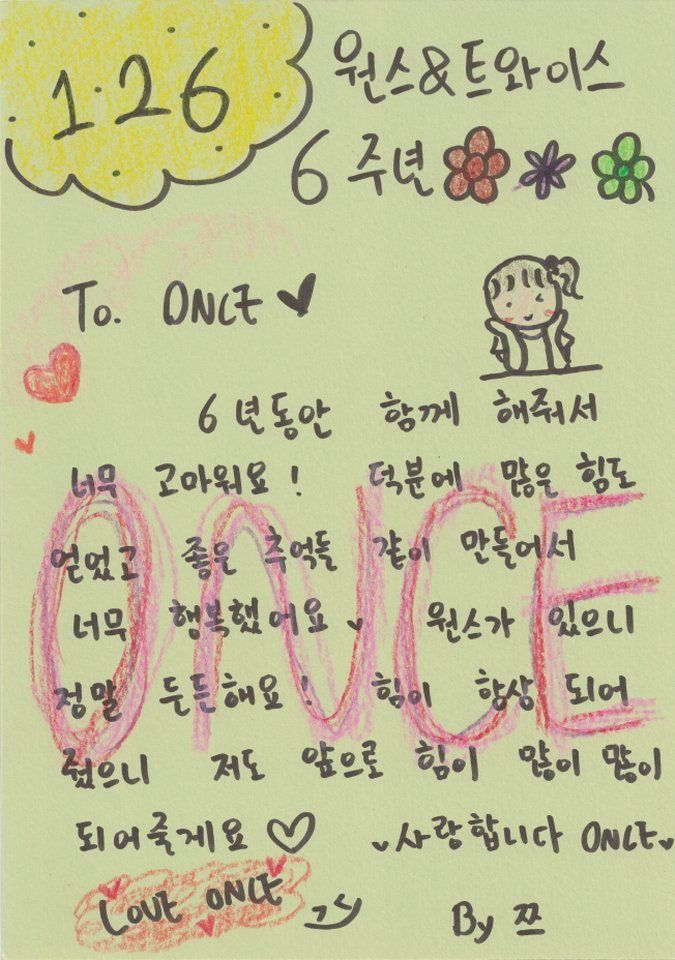 1.26
원스&트와이스
6주년
To. ONCE
6년동안 함께 해줘서
너무 고마워요! 덕분에 많은 힘도
얻었고 좋은 추억들 같이 만들어서
너무 행복했어요 원스가 있으니
정말 든든해요! 힘이 항상 되어
줬으니 저도 앞으로 힘이 많이 많이
되어줄게요♡ ♥사랑합니다 ONCE♥
ONCE
LOVE ONCE
By 쯔